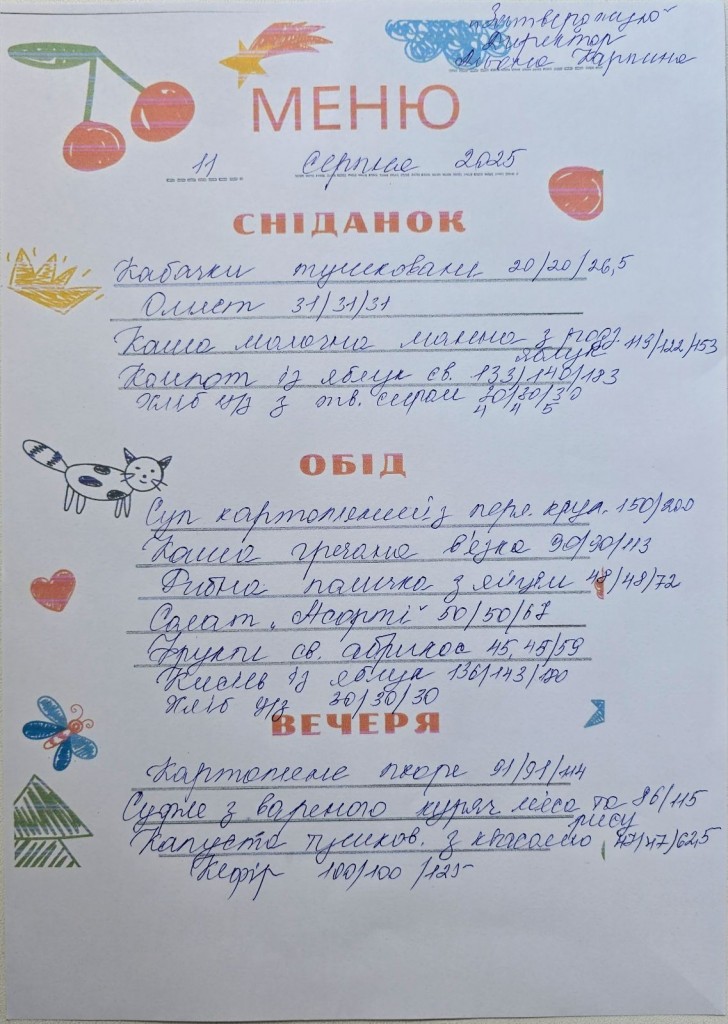 "Затверджую"
Директор
Карпина
МЕНЮ
11 серпня 2025
СНІДАНОК
Кабачки тушковані 20/20/26,5
Омлет 31/31/31
Каша молочна манна з 113/122/153
яблук
Компот із яблук св. 133/140/183
Хліб ц/з з тв. сиром 30/30/30
4 4 5
ОБІД
Суп картопляний з перл. круп. 150/200
Каша гречана в'язка 90/90/113
Рибна паличка з яйцем 48/48/72
Салат "Асорті" 50/50/67
Фрукти св. абрикос 45,45/59
Кисіль із яблук 136/143/180
Хліб ц/з 30/30/30
ВЕЧЕРЯ
Картопляне пюре 91/91/114
Суфле з вареного куряч м'яса та 86/115
рису
Капуста тушков. з квасолею 47/47/62,5
Кефір 100/100/125